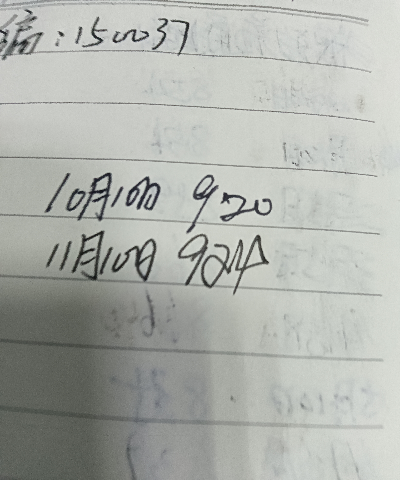 编:150037
10月10日 920
11月10日 924